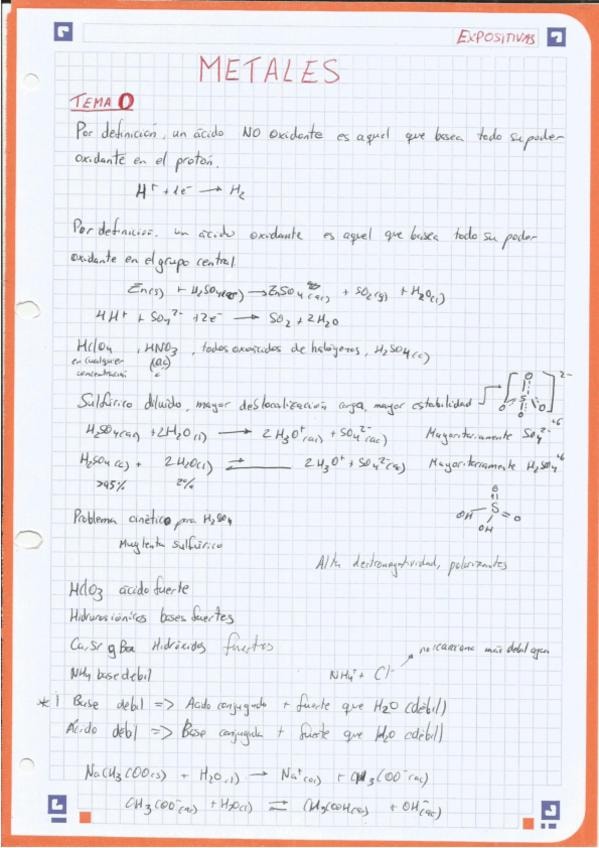 EXPOSITIVAS
METALES
TEMA 0
Por definición, un ácido NO oxidante es aquel que basea todo su poder
oxidante en el protón.
H⁺ + 1e⁻ → H₂
Por definición, un ácido oxidante es aquel que basea todo su poder
oxidante en el grupo central
Zn(s) + H₂SO₄ → ZnSO₄(ac) + SO₂(g) + H₂O(l)
4H⁺ + SO₄²⁻ + 2e⁻ → SO₂ + 2H₂O
HClO₄, HNO₃, todos oxoácidos de halógenos, H₂SO₄(c)
en cualquier
concentración
Sulfúrico diluido, mayor deslocalización carga, mayor estabilidad
[O S O O O]²⁻
H₂SO₄(ac) + 2H₂O(l) → 2H₃O⁺(ac) + SO₄²⁻(ac) Mayoritariamente SO₄²⁻ +6
H₂SO₄(c) + 2H₂O(l) ⇌ 2H₃O⁺ + SO₄²⁻(ac) Mayoritariamente H₂SO₄ +6
>95% 2%
O
OH S = O
OH
Problema cinético para H₂SO₄
Muy lenta sulfúrico
Alta electronegatividad, polarizantes
HClO₃ ácido fuerte
Hidruros iónicos bases fuertes
Ca, Sr y Ba Hidróxidos fuertes
no reacciona más débil agua
NH₃ base débil NH₄⁺ + Cl⁻
* Base débil => Ácido conjugado + fuerte que H₂O (débil)
Ácido débil => Base conjugada + fuerte que H₂O (débil)
NaCH₃COO(s) + H₂O(l) → Na⁺(ac) + CH₃COO⁻(ac)
CH₃COO⁻(ac) + H₂O(l) ⇌ CH₃COOH(ac) + OH⁻(ac)